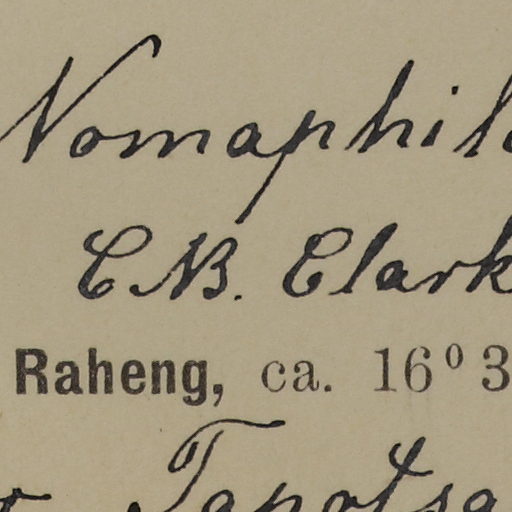 Nomaphil
C. B. Clark
Raheng, ca. 16º 3
Tapotsa